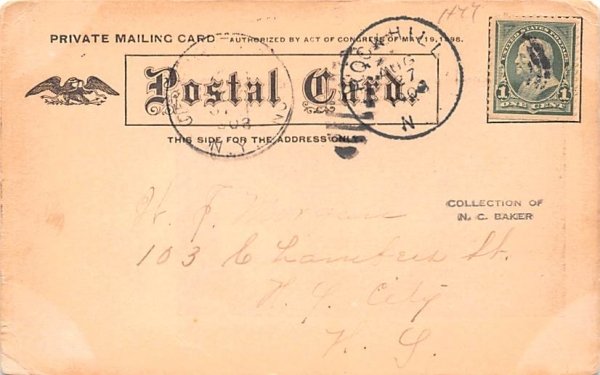 1477
PRIVATE MAILING CARD AUTHORIZED BY ACT OF CONGRESS OF MAY 19, 1898.
Postal Card.
THIS SIDE FOR THE ADDRESS ONLY.
ROCK HILL
AUG
7
N
N.Y.
1
ONE CENT
1
COLLECTION OF
N. C. BAKER
103 Chambers St.
N. Y. City
N. Y.